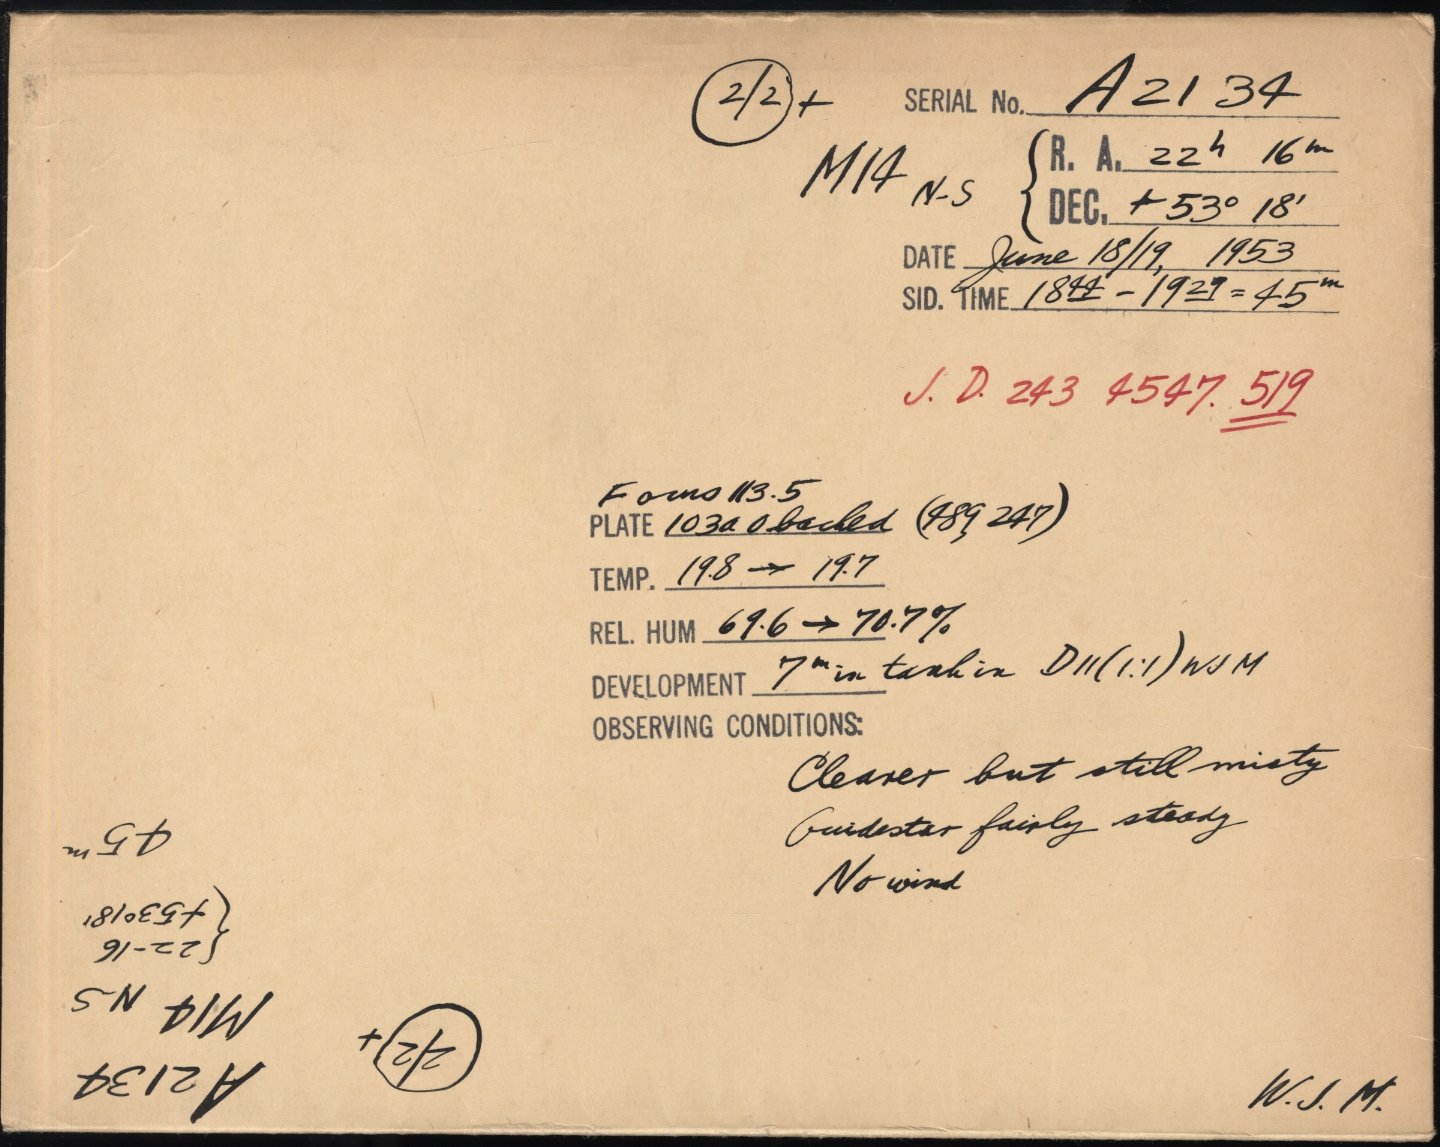 2/2 +
SERIAL No. A2134
M14 N-S
R. A. 22h 16m
DEC. +53° 18'
DATE June 18/19, 1953
SID. TIME 18 44 - 19 29 = 45m
J. D. 243 4547.519
Focus 113.5
PLATE 103a O backed (489, 247)
TEMP. 19.8 → 19.7
REL. HUM 69.6 → 70.7%
DEVELOPMENT 7m in tank in D11 (1:1) WJM
OBSERVING CONDITIONS:
Clearer but still misty
Guidestar fairly steady
No wind
W. J. M.
A2134
M14 N-S
22-16
+53°18'
45m
2/2 +